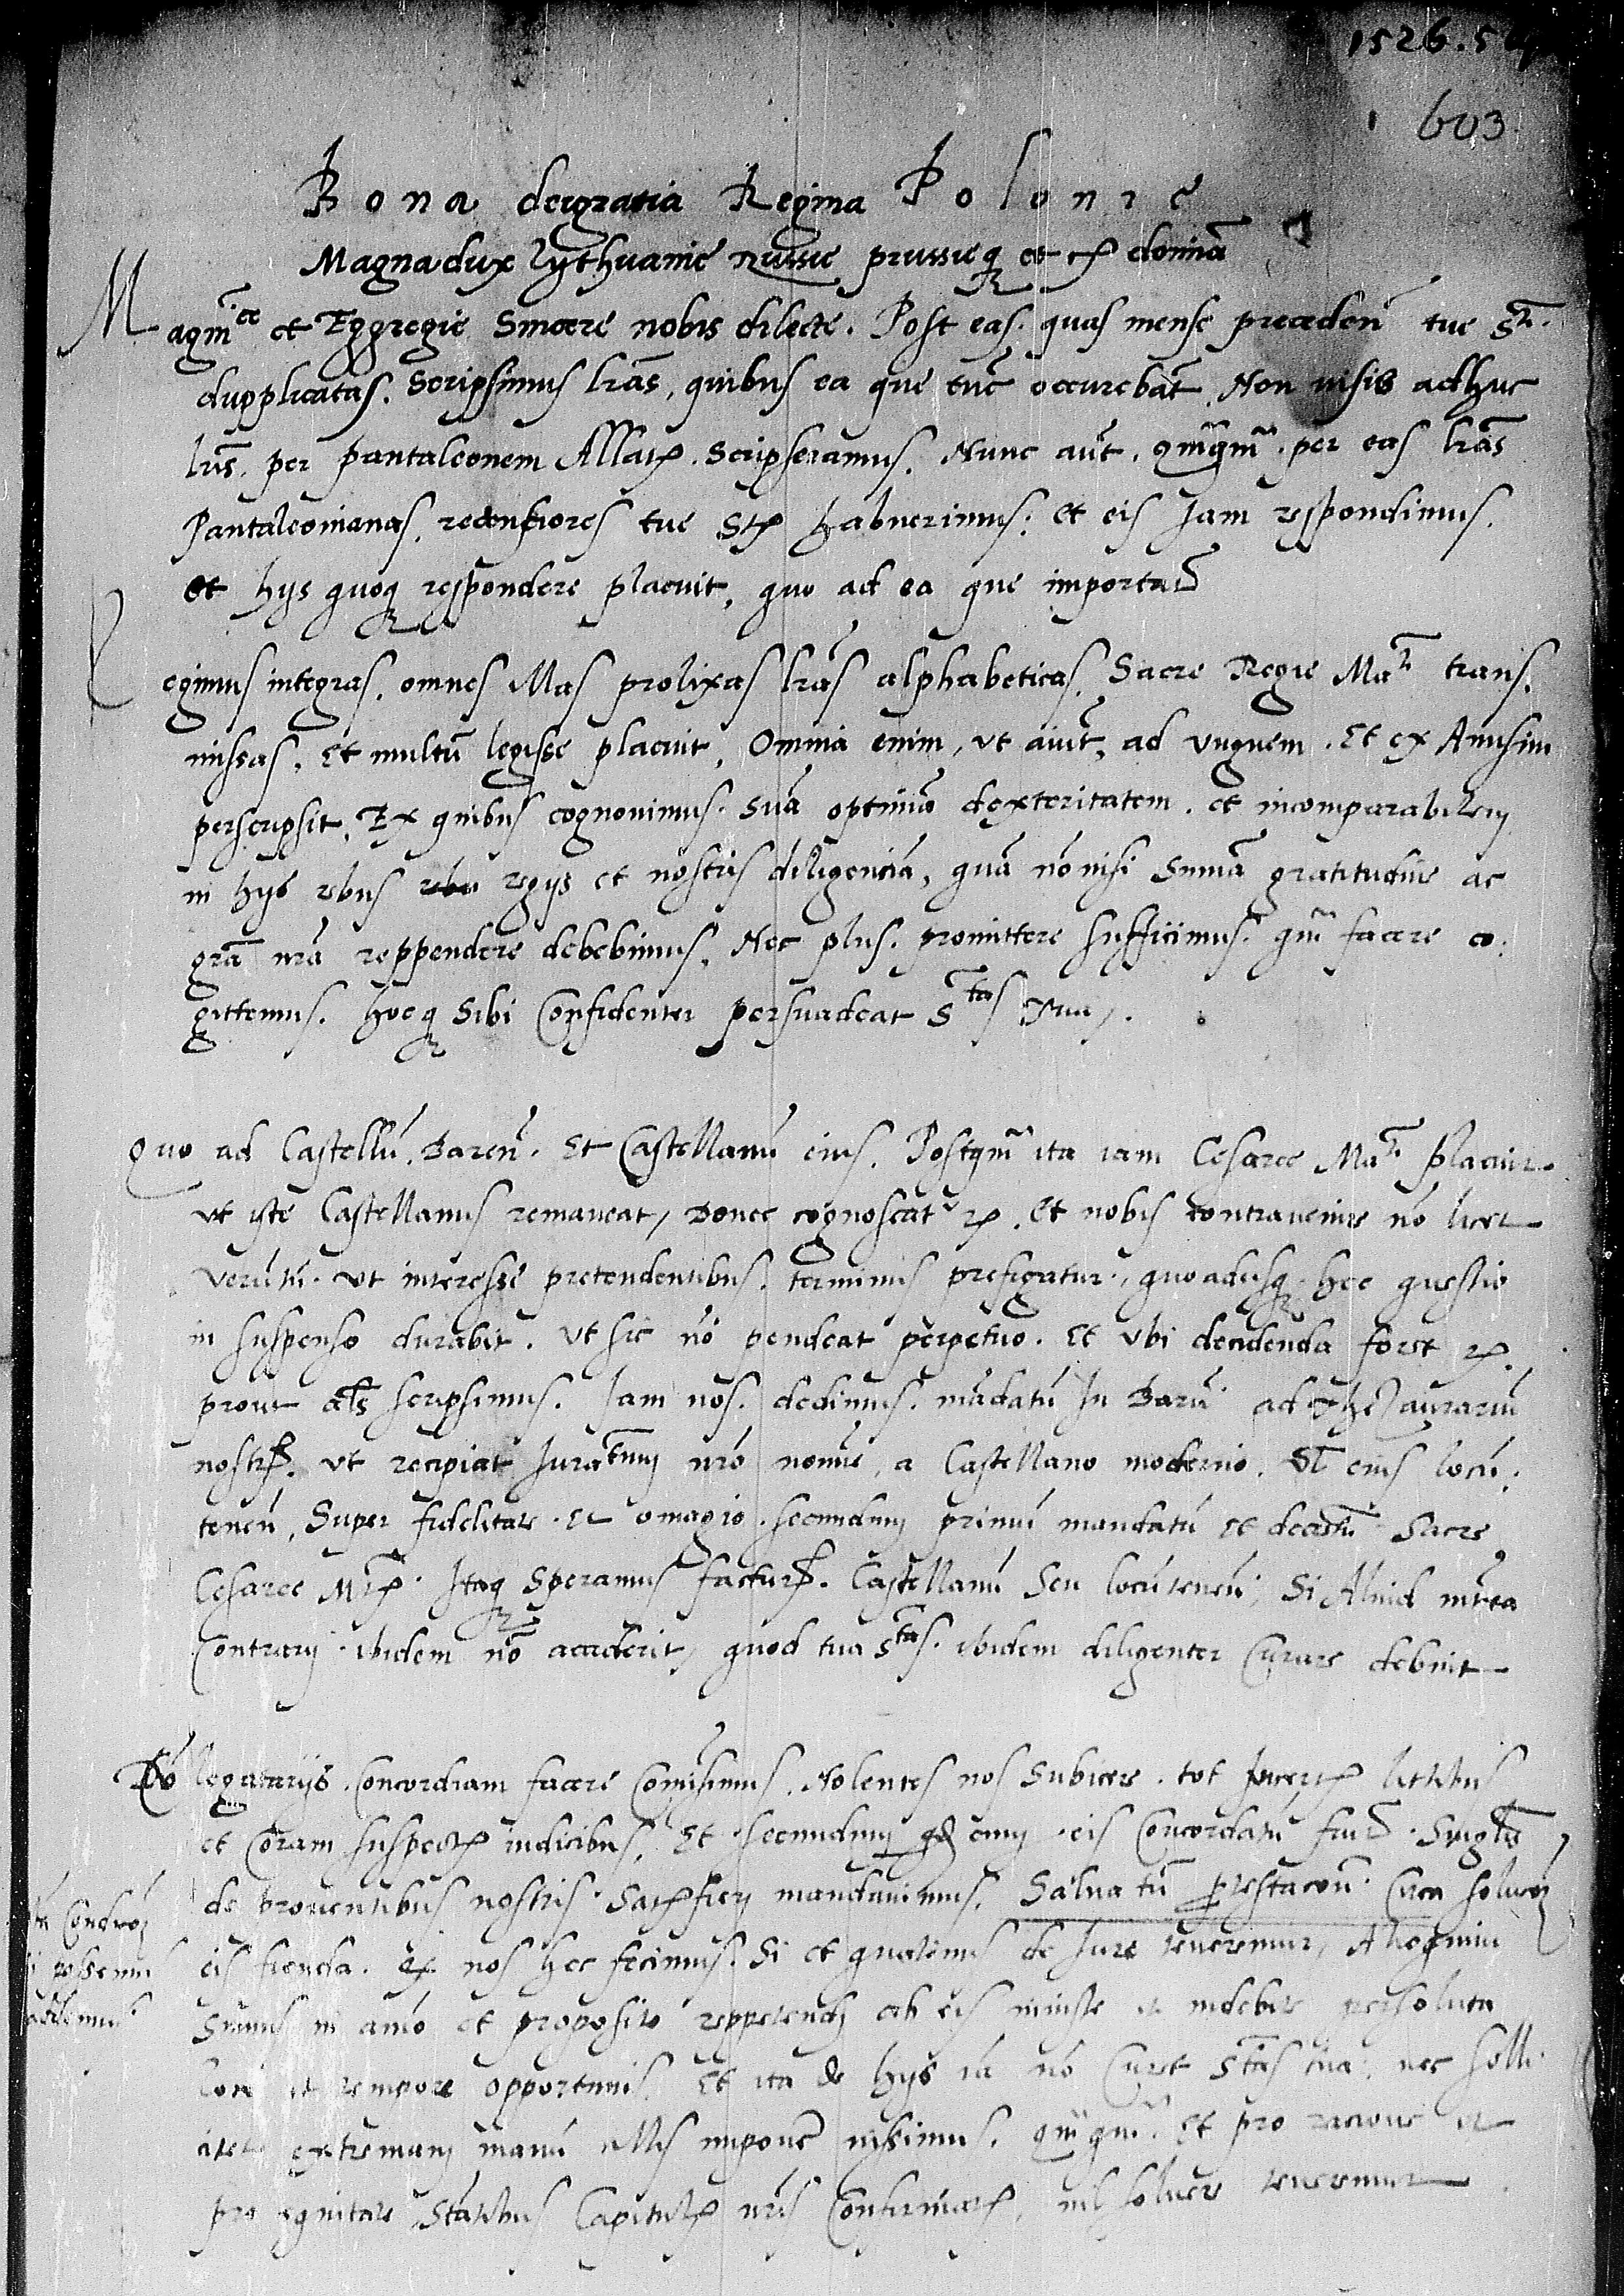 1526.
603
Bona dei gratia Regina Polonie
Magna dux lythuanie Russie prussieq et cꝫ domina
Magnice et Eggregie Sincere nobis dilecte. Post eas. quas mense preceden̄ tue Sti.
dupplicatas. Scripsimus lr̄as, quibus ea que tūc occurebāt. Non visis adhuc
lr̄is. per pantaleonem Allatꝫ. Scripseramus. Nunc aūt. qm̄qm̄. per eas lr̄as
Pantaleonianas, recentiores tue Stꝫ habuerimus: et eis Jam respondimus.
et hijs quoq respondere placuit, quo ad ea que important
Legimus integras. omnes illas prolixas lr̄as alphabeticas, Sacre Regie Mati trans.
missas, Et multū legisse placuit, Omnia enim, ut aiūt, ad unguem. Et ex Amusim
perscripsit, Ex quibus cognovimus. Suā optimā dexteritatem. et incomparabilem
in hijs rebus regijs et nostris diligenciā, quā nō nisi Sum̄a gratitudine ac
gr̄a nr̄a reppendere debebimus, Nec plus. promittere Sufficimus. qm̄ facere co.
gittemus. hocq Sibi Confidenter persuadeat Stas Tua.
Quo ad Castellū. Baren̄. Et Castellanū eius. Postqm̄ ita iam Cesaree Mati placuit.
ut iste Castellanus remaneat, Donec cognoscat rꝫ. et nobis contravenire nō licet
verūtn̄. ut interesse pretendentibus. terminus prefigatur, quoadusq hec questio
in suspenso durabit. ut sic nō pendeat perpetuo. Et ubi decidenda foret rꝫ.
prout als̄ scripsimus. Jam nos. dedimus. mādatū In Barū ad thesaurariū
nostrꝫ. ut recipiat Juramtum nr̄o nomīe, a Castellano moderno. vl̄ eius locū.
tenen̄, Super fidelitate. et omagio. secundum primū mandatū et decretū Sacre
Cesaree Mtꝫ. Itaq Speramus facturꝫ. Castellanū Seu locūtenen̄, Si Aliud intea
Contrarij. ibidem nō acciderit, quod tua Stas. ibidem diligenter Curare debuit
De legatarijs. Concordiam facere Comisimus. Nolentes nos Subicere. tot litibus
et Coram suspectꝫ iudicibus, Et secundum qd cum eis Concordatū fuit.
de proventibus nostris. Satꝫfieri mandavimus, Salva tn̄ prestacon̄. Circa
eis fienda. nos hec fecimus. Si et quatenus de Jure teneremur, Alioquin
Sumus in aīo et proposito reppetendi ab eis iniuste et indebite persoluta
loco et tempore opportunis. Et ita de hijs iā nō Curet Stas tua. nec solli
citet extremam manū illis imponer̄ nisimus. qm̄qm̄. Et pro racione et
pro equitate Statibus Capitulꝫ nr̄is Confirmatꝫ, nil solvere teneremur